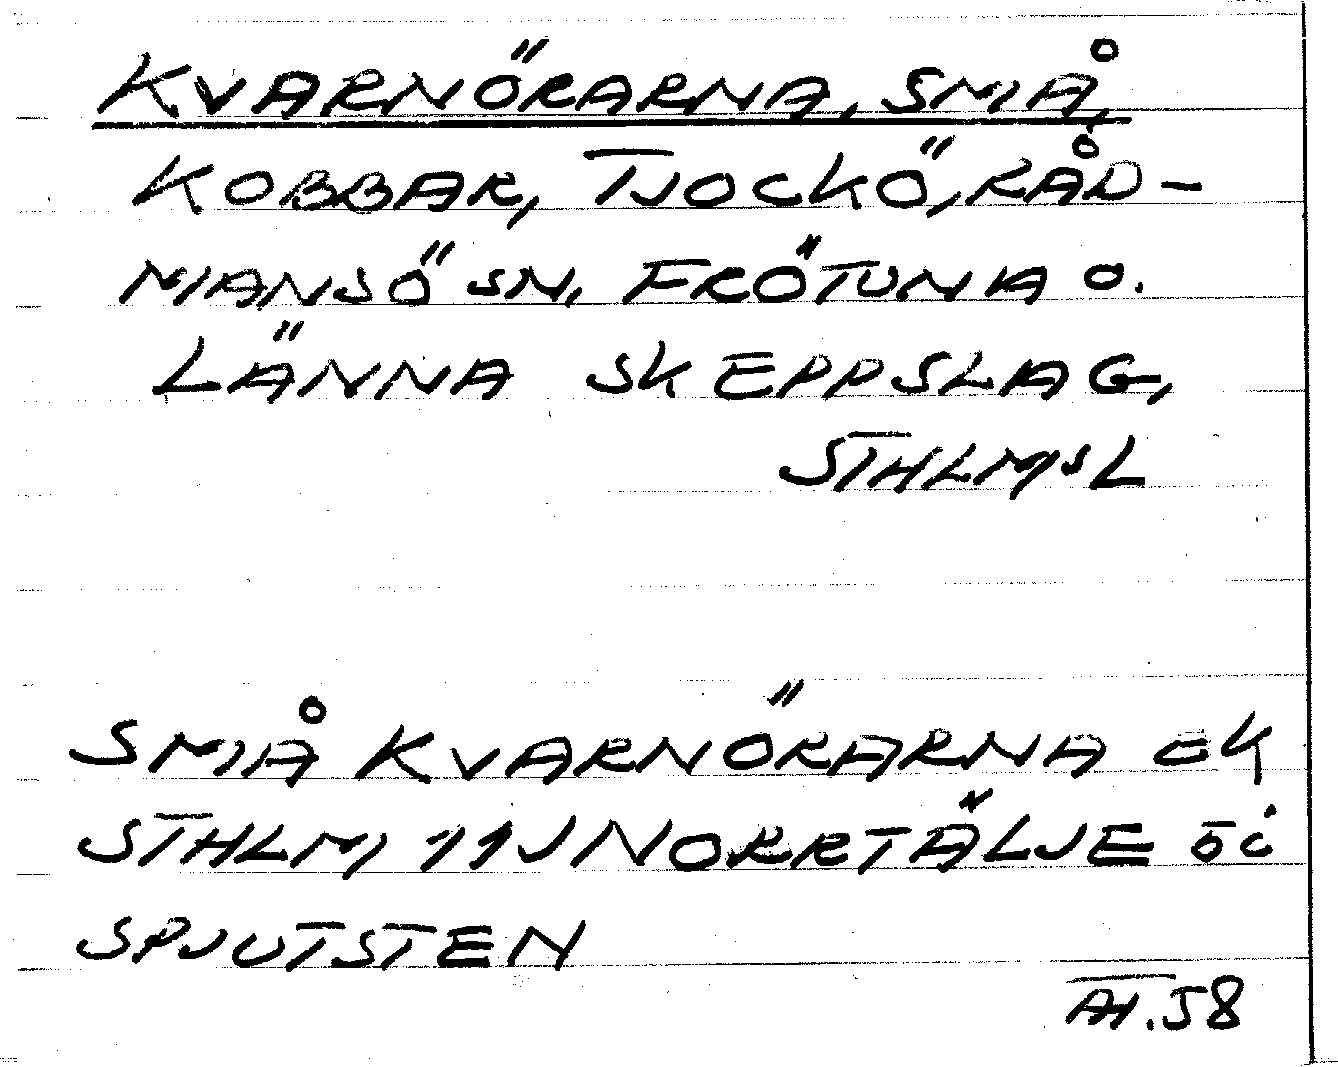 KVARNÖRARNA, SMÅ,
KOBBAR, TJOCKÖ, RÅD-
MANSÖ SN, FRÖTUNA O.
LÄNNA SKEPPSLAG,
STHLMSL
SMÅ KVARNÖRARNA EK
STHLM 11J NORRTÄLJE
SPJUTSTEN
AH.58